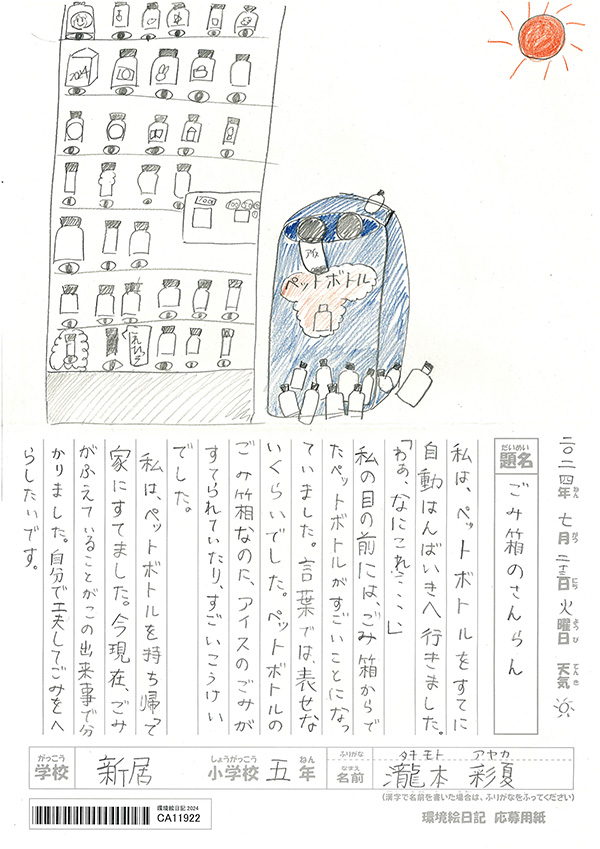 2024
100
アイス
ペットボトル
これひとつ
二〇二四年 七月 二三日 火曜日 天気
ねん がつ にち ようび てんき
だいめい
題名 ごみ箱のさんらん
私は、ペットボトルをすてに
自動はんばいきへ行きました。
「わぁ、なにこれ・・・」
私の目の前には、ごみ箱からで
たペットボトルがすごいことになっ
ていました。言葉では、表せな
いくらいでした。ペットボトルの
ごみ箱なのに、アイスのごみが
すてられていたり、すごいこうけい
でした。
私は、ペットボトルを持ち帰って
家にすてました。今現在、ごみ
がふえていることがこの出来事で分
かりました。自分で工夫してごみをへ
らしたいです。
がっこう しょうがっこう ねん ふりがな タキモト アヤカ
学校 新居 小学校 五年 なまえ 名前 瀧本 彩夏
(漢字で名前を書いた場合は、ふりがなをふってください)
環境絵日記 2024
CA11922
環境絵日記 応募用紙